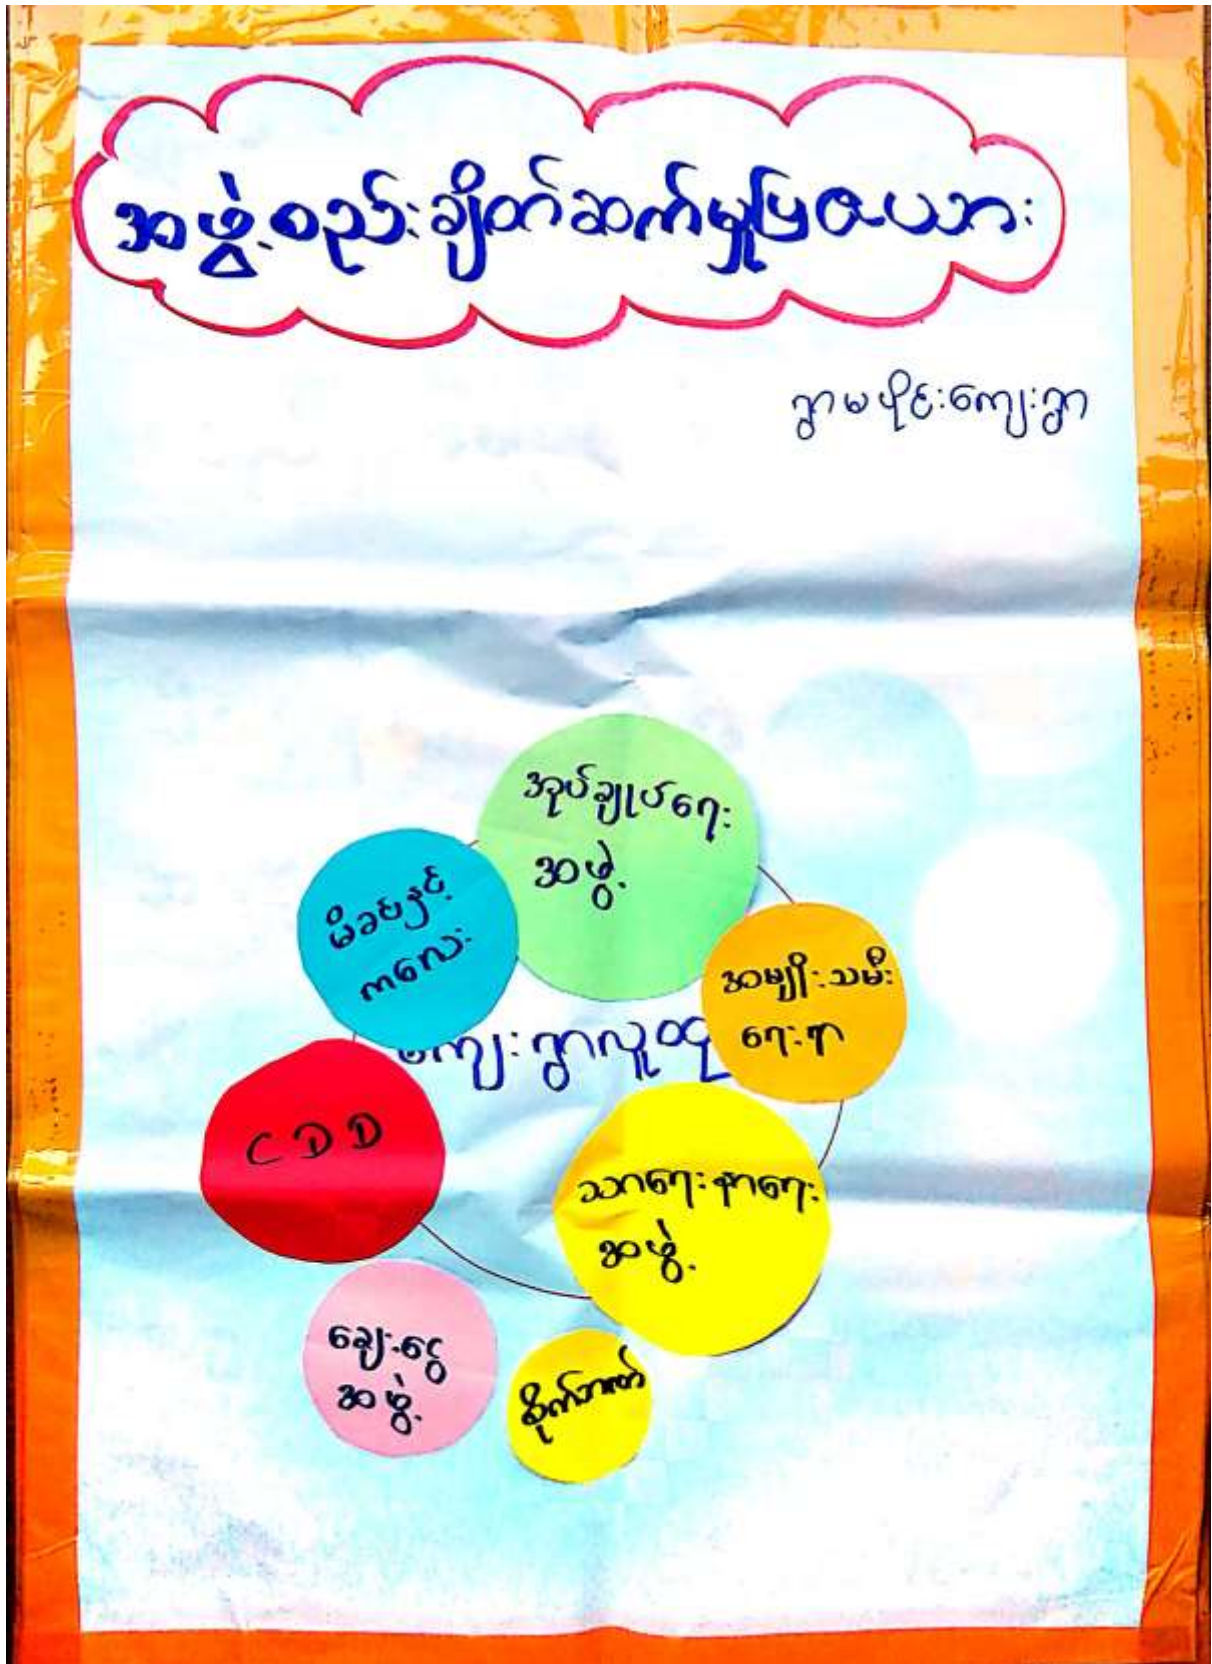 အဖွဲ့စည်းချိတ်ဆက်မှုပြဇယား
ရွာမပိုင်းကျေးရွာ
အုပ်ချုပ်ရေး
အဖွဲ့
မိခင်နှင့်
ကလေး
အမျိုးသမီး
ရေးရာ
ကျေးရွာလူထု
CDD
သာရေးနာရေး
အဖွဲ့
ချေးငွေ
အဖွဲ့
စိုက်ဘဏ်